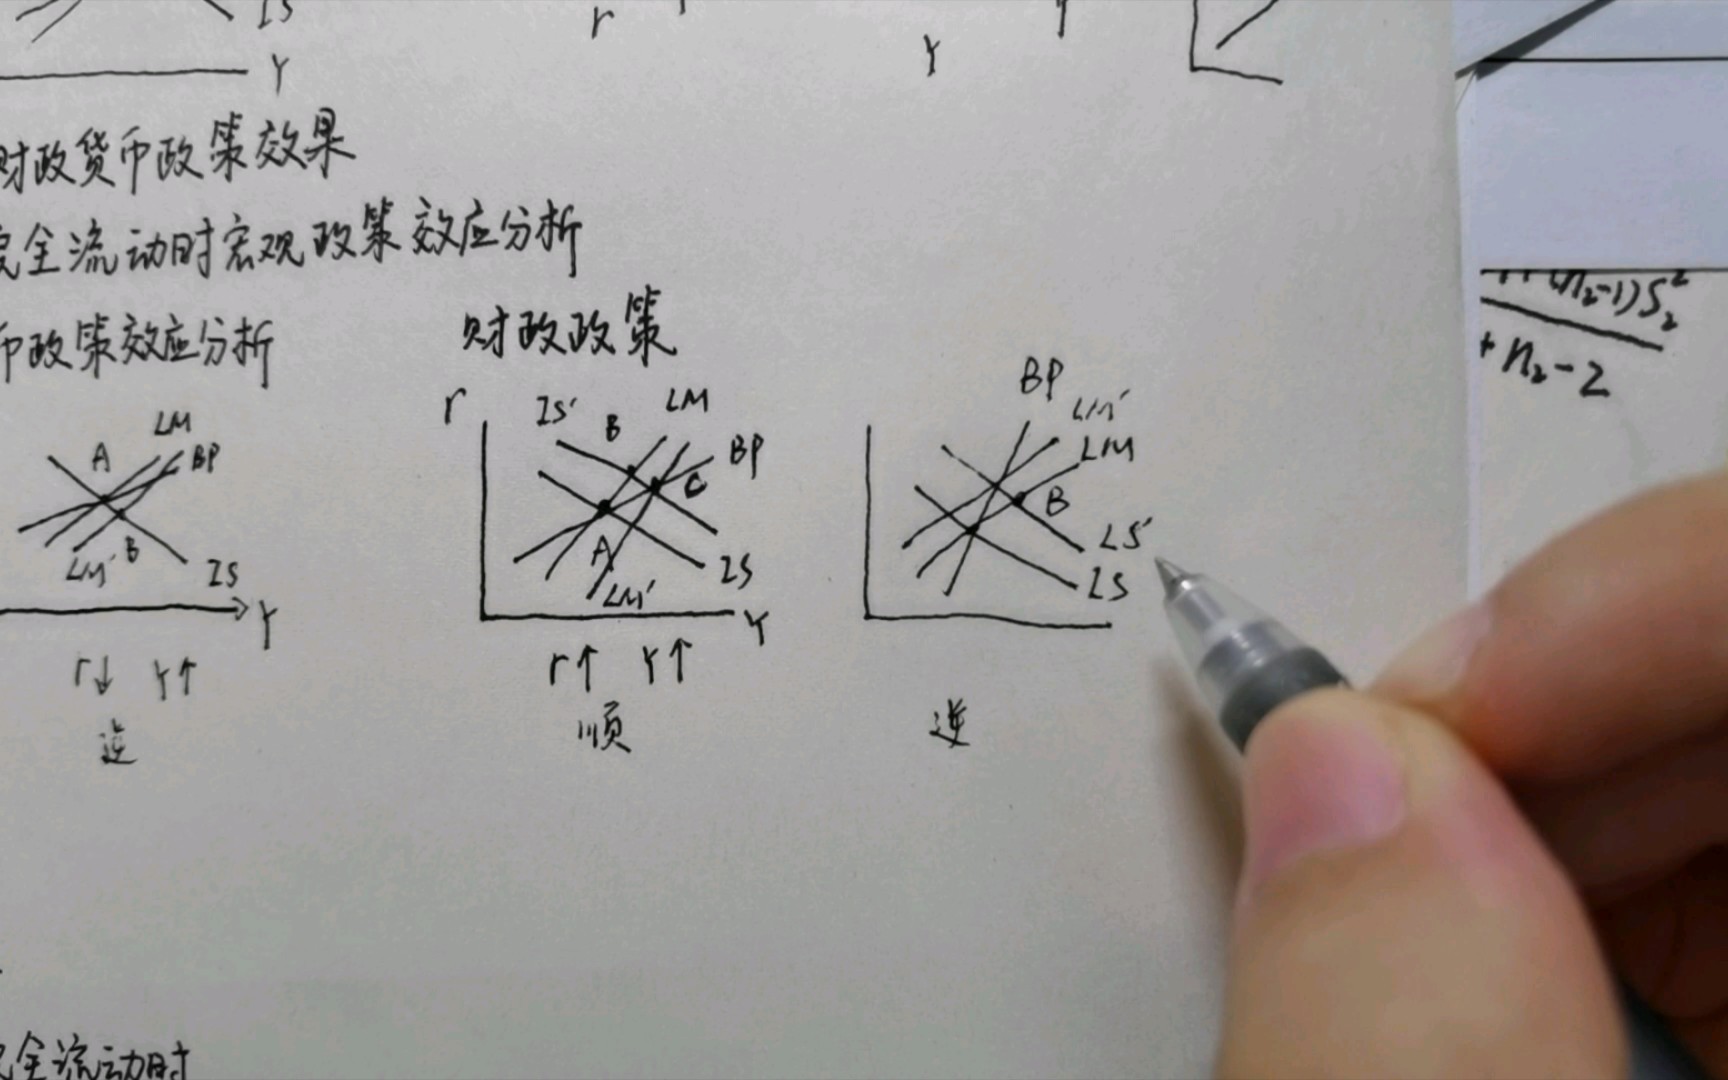 IS
Y
r
Y
Y
财政货币政策效果
完全流动时宏观政策效应分析
币政策效应分析
财政政策
(n₂-1)S₂²
+ n₂-2
LM
A
BP
LM'
B
IS
Y
r↓ Y↑
逆
r
IS'
B
LM
BP
C
A
IS
LM'
Y
r↑ Y↑
顺
BP
LM'
LM
B
LS'
LS
逆
完全流动时